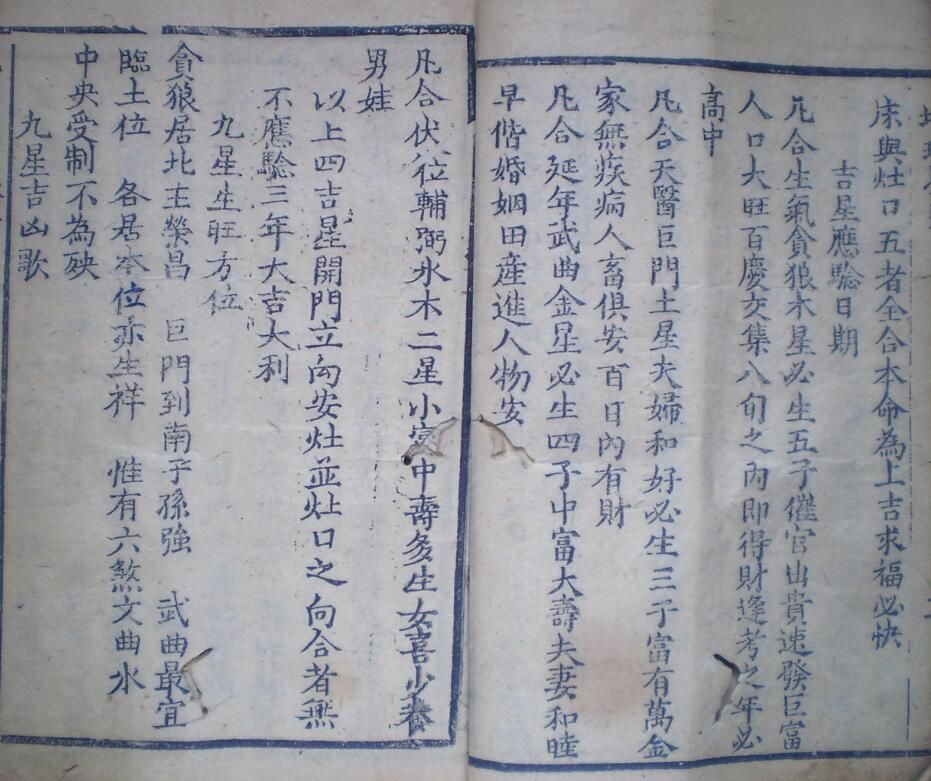 床與灶口五者全合本命為上吉求福必快
吉星應驗日期
凡合生氣貪狼木星必生五子催官出貴速發巨富
人口大旺百慶交集八旬之內即得財逢考之年必
高中
凡合天醫巨門土星夫婦和好必生三子富有萬金
家無疾病人畜俱安百日內有財
凡合延年武曲金星必生四子中富大壽夫妻和睦
早偕婚姻田産進人物安
凡合伏位輔弼水木二星小富中壽多生女喜少養
男娃
以上四吉星開門立向安灶並灶口之向合者無
不應驗三年大吉大利
九星生旺方位
貪狼居北主榮昌 巨門到南子孫強 武曲最宜
臨土位 各居本位亦生祥 惟有六煞文曲水
中央受制不為殃
九星吉凶歌